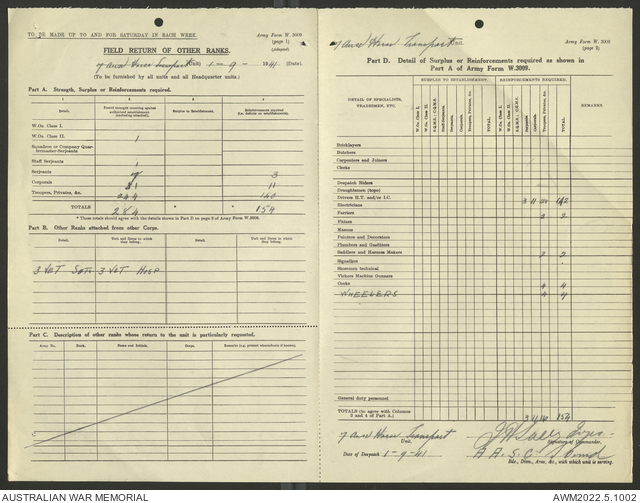 TO BE MADE UP TO AND FOR SATURDAY IN EACH WEEK.
Army Form W. 3009
(page 1)
(Adapted)
FIELD RETURN OF OTHER RANKS.
Horse Transport (Unit) 1-9-1941 (Date).
(To be furnished by all units and all Headquarter units.)
Part A. Strength, Surplus or Reinforcements required.
1 2 3 4
Detail.
Surplus to Establishment.
Reinforcements required
W.Os. Class I.
W.Os. Class II. 1
Squadron or Company Quar-
termaster-Serjeants
Staff Serjeants 1
Serjeants 3
Corporals 11
Troopers, Privates, &c. 244 140
TOTALS 284 * * 154
* These totals should agree with the details shown in Part D on page 2 of Army Form W.3009.
Part B. Other Ranks attached from other Corps.
1 2 3 4
Detail. Unit and Corps to which they belong. Detail. Unit and Corps to which they belong.
3 VET 3 VET HOSP
Part C. Description of other ranks whose return to the unit is particularly requested.
Army No. Rank. Name and Initials. Corps. Remarks (e.g. present whereabouts if known).
Horse Transport Unit.
Army Form W. 3009
(page 2)
Part D. Detail of Surplus or Reinforcements required as shown in
Part A of Army Form W.3009.
DETAIL OF SPECIALISTS, TRADESMEN, ETC.
SURPLUS TO ESTABLISHMENT.
REINFORCEMENTS REQUIRED.
REMARKS.
W.Os. Class I.
W.Os. Class II.
S.Q.M.S.; C.Q.M.S.
Staff-Serjeants
Serjeants
Corporals
Troopers, Privates, &c.
TOTAL
W.Os. Class I.
W.Os. Class II.
S.Q.M.S.; C.Q.M.S.
Serjeants
Corporals
Troopers, Privates, &c.
TOTAL
Bricklayers
Butchers
Carpenters and Joiners
Clerks
Despatch Riders
Draughtsmen (topo)
Drivers H.T. and/or I.C. 3 11 142
Electricians
Farriers 2
Fitters
Masons
Painters and Decorators
Plumbers and Gasfitters
Saddlers and Harness Makers 2 2
Signallers
Storemen technical
Vickers Machine Gunners
Cooks 4 4
WHEELERS 4 4
General duty personnel
TOTALS (to agree with Columns
3 and 4 of Part A.) 3 11 140 154
Horse Transport Unit.
Signature of Commander.
Date of Despatch 1-9-41
A.A.S.C.
Bde., Divn., Area, &c., with which unit is serving.
AUSTRALIAN WAR MEMORIAL
AWM2022.5.1002